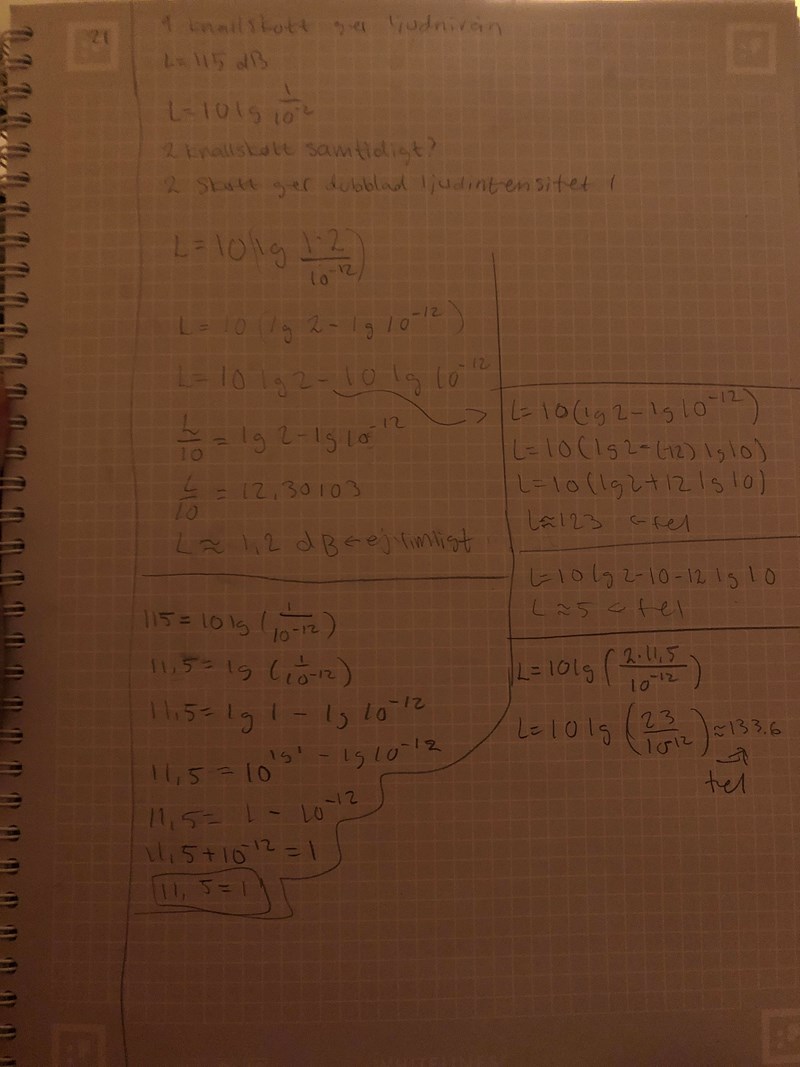 21
1 knallskott ger ljudnivån
L=115 dB
L=10 lg I/10^-2
2 knallskott samtidigt?
2 skott ger dubblad ljudintensitet I
L=10(lg I·2/10^-12)
L=10(lg 2-lg 10^-12)
L=10 lg 2-10 lg 10^-12
L/10=lg 2-lg 10^-12
L/10=12,30103
L≈1,2 dB←ej rimligt
115=10 lg (I/10^-12)
11,5=lg (I/10^-12)
11,5=lg I-lg 10^-12
11,5=10^lg I-lg 10^-12
11,5=I-10^-12
11,5+10^-12=I
11,5=I
L=10(lg 2-lg 10^-12)
L=10(lg 2-(-12) lg 10)
L=10(lg 2+12 lg 10)
L≈123 ←fel
L=10 lg 2-10-12 lg 10
L≈5 ←fel
L=10 lg (2·11,5/10^-12)
L=10 lg (23/10^-12)≈133.6
→
fel